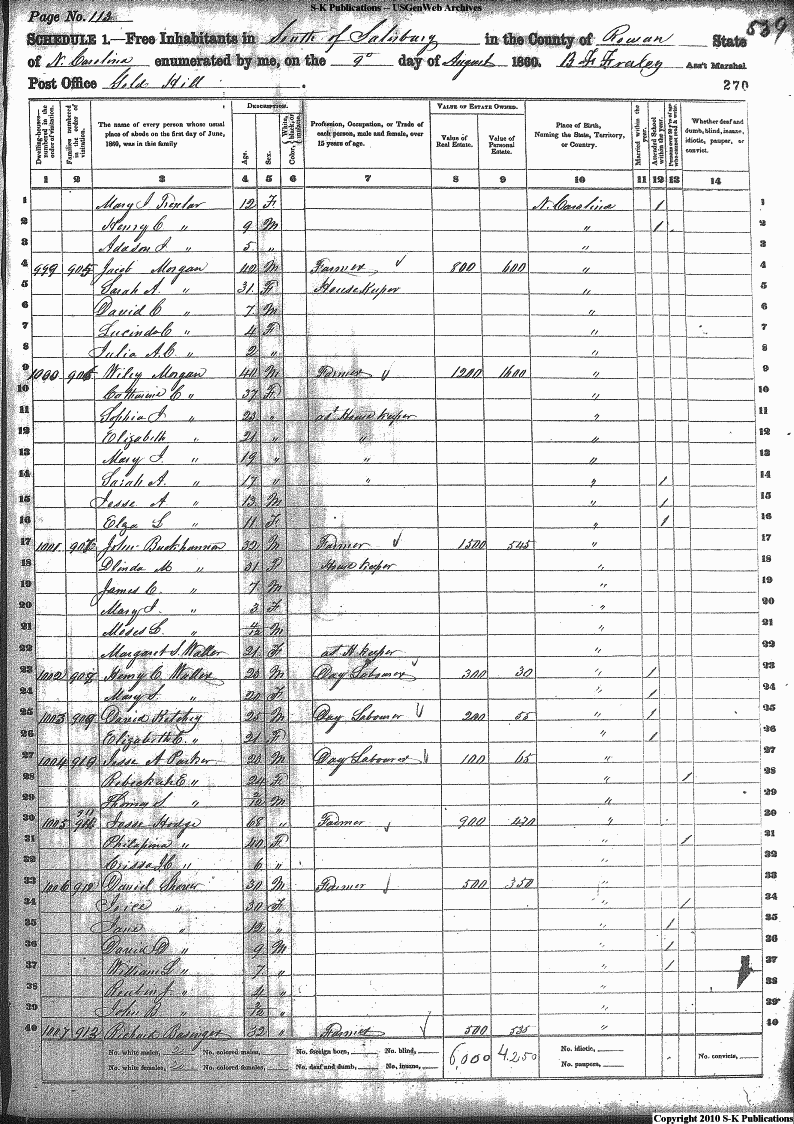 S-K Publications -- USGenWeb Archives
Page No. 112
539
SCHEDULE 1.—Free Inhabitants in South of Salisbury in the County of Rowan State
of N. Carolina enumerated by me, on the 9" day of August 1860. B F Fraley Ass't Marshal
Post Office Gold Hill
270
Dwelling-houses—numbered in the order of visitation.
Families numbered in the order of visitation.
The name of every person whose usual place of abode on the first day of June, 1860, was in this family
DESCRIPTION.
Age.
Sex.
Color, White, black, or mulatto.
Profession, Occupation, or Trade of each person, male and female, over 15 years of age.
VALUE OF ESTATE OWNED.
Value of Real Estate.
Value of Personal Estate.
Place of Birth, Naming the State, Territory, or Country.
Married within the year.
Attended School within the year.
Persons over 20 y'rs of age who cannot read & write.
Whether deaf and dumb, blind, insane, idiotic, pauper, or convict.
1 2 3 4 5 6 7 8 9 10 11 12 13 14
1 Mary J 12 F N. Carolina / 1
2 Henry C " 9 M " / 2
3 Adason J " 5 " " 3
4 999 905 Jacob Morgan 40 M Farmer 800 600 " 4
5 Sarah A. " 31 F House Keeper " 5
6 David C " 7 M " 6
7 Lucinda C " 4 F " 7
8 Julia A. C " 2 " " 8
9 1000 906 Wiley Morgan 40 M Farmer 1200 1600 " 9
10 Catharine C " 37 F " 10
11 Sophia J. " 23 " at House Keeper " 11
12 Elizabeth " 21 " " " 12
13 Mary J " 19 " " " 13
14 Sarah A. " 17 " " " / 14
15 Jesse A " 13 M " / 15
16 Elza L " 11 F " / 16
17 1001 907 John Buckhannon 32 M Farmer 1500 545 " 17
18 M " 31 F House Keeper " 18
19 James C. " 7 M " 19
20 Mary J. " 3 F " 20
21 Moses L. " 4/12 M " 21
22 Margaret S. Waller 21 F at H. Keeper " 22
23 1002 908 Henry C Waller 23 M Day Labourer 300 30 " / 23
24 Mary S " 20 F " / 24
25 1003 909 David Ketchey 25 M Day Labourer 200 55 " / 25
26 Elizabeth E. " 21 F " / 26
27 1004 910 Jesse A Parker 20 M Day Labourer 100 65 " 27
28 Rebeckah E " 24 F " / 28
29 Thomas S " M " 29
30 1005 911 Jesse Hodge 68 " Farmer 900 430 " 30
31 Philapina " 40 F " / 31
32 " 6 " " 32
33 1006 912 Daniel 30 M Farmer 500 350 " 33
34 Joice " 30 F " / 34
35 Jane " 12 " " / 35
36 David D " 9 M " / 36
37 William L " 7 " " / 37
38 Reuben J " 4 " " 38
39 John B " " " 39
40 1007 913 Richard Basinger 32 " Farmer 500 535 " 40
No. white males, No. colored males, No. foreign born, No. blind, 6,000 4.250 No. idiotic, No. convicts,
No. white females, No. colored females, No. deaf and dumb, No. insane, No. paupers,
Copyright 2010 S-K Publications